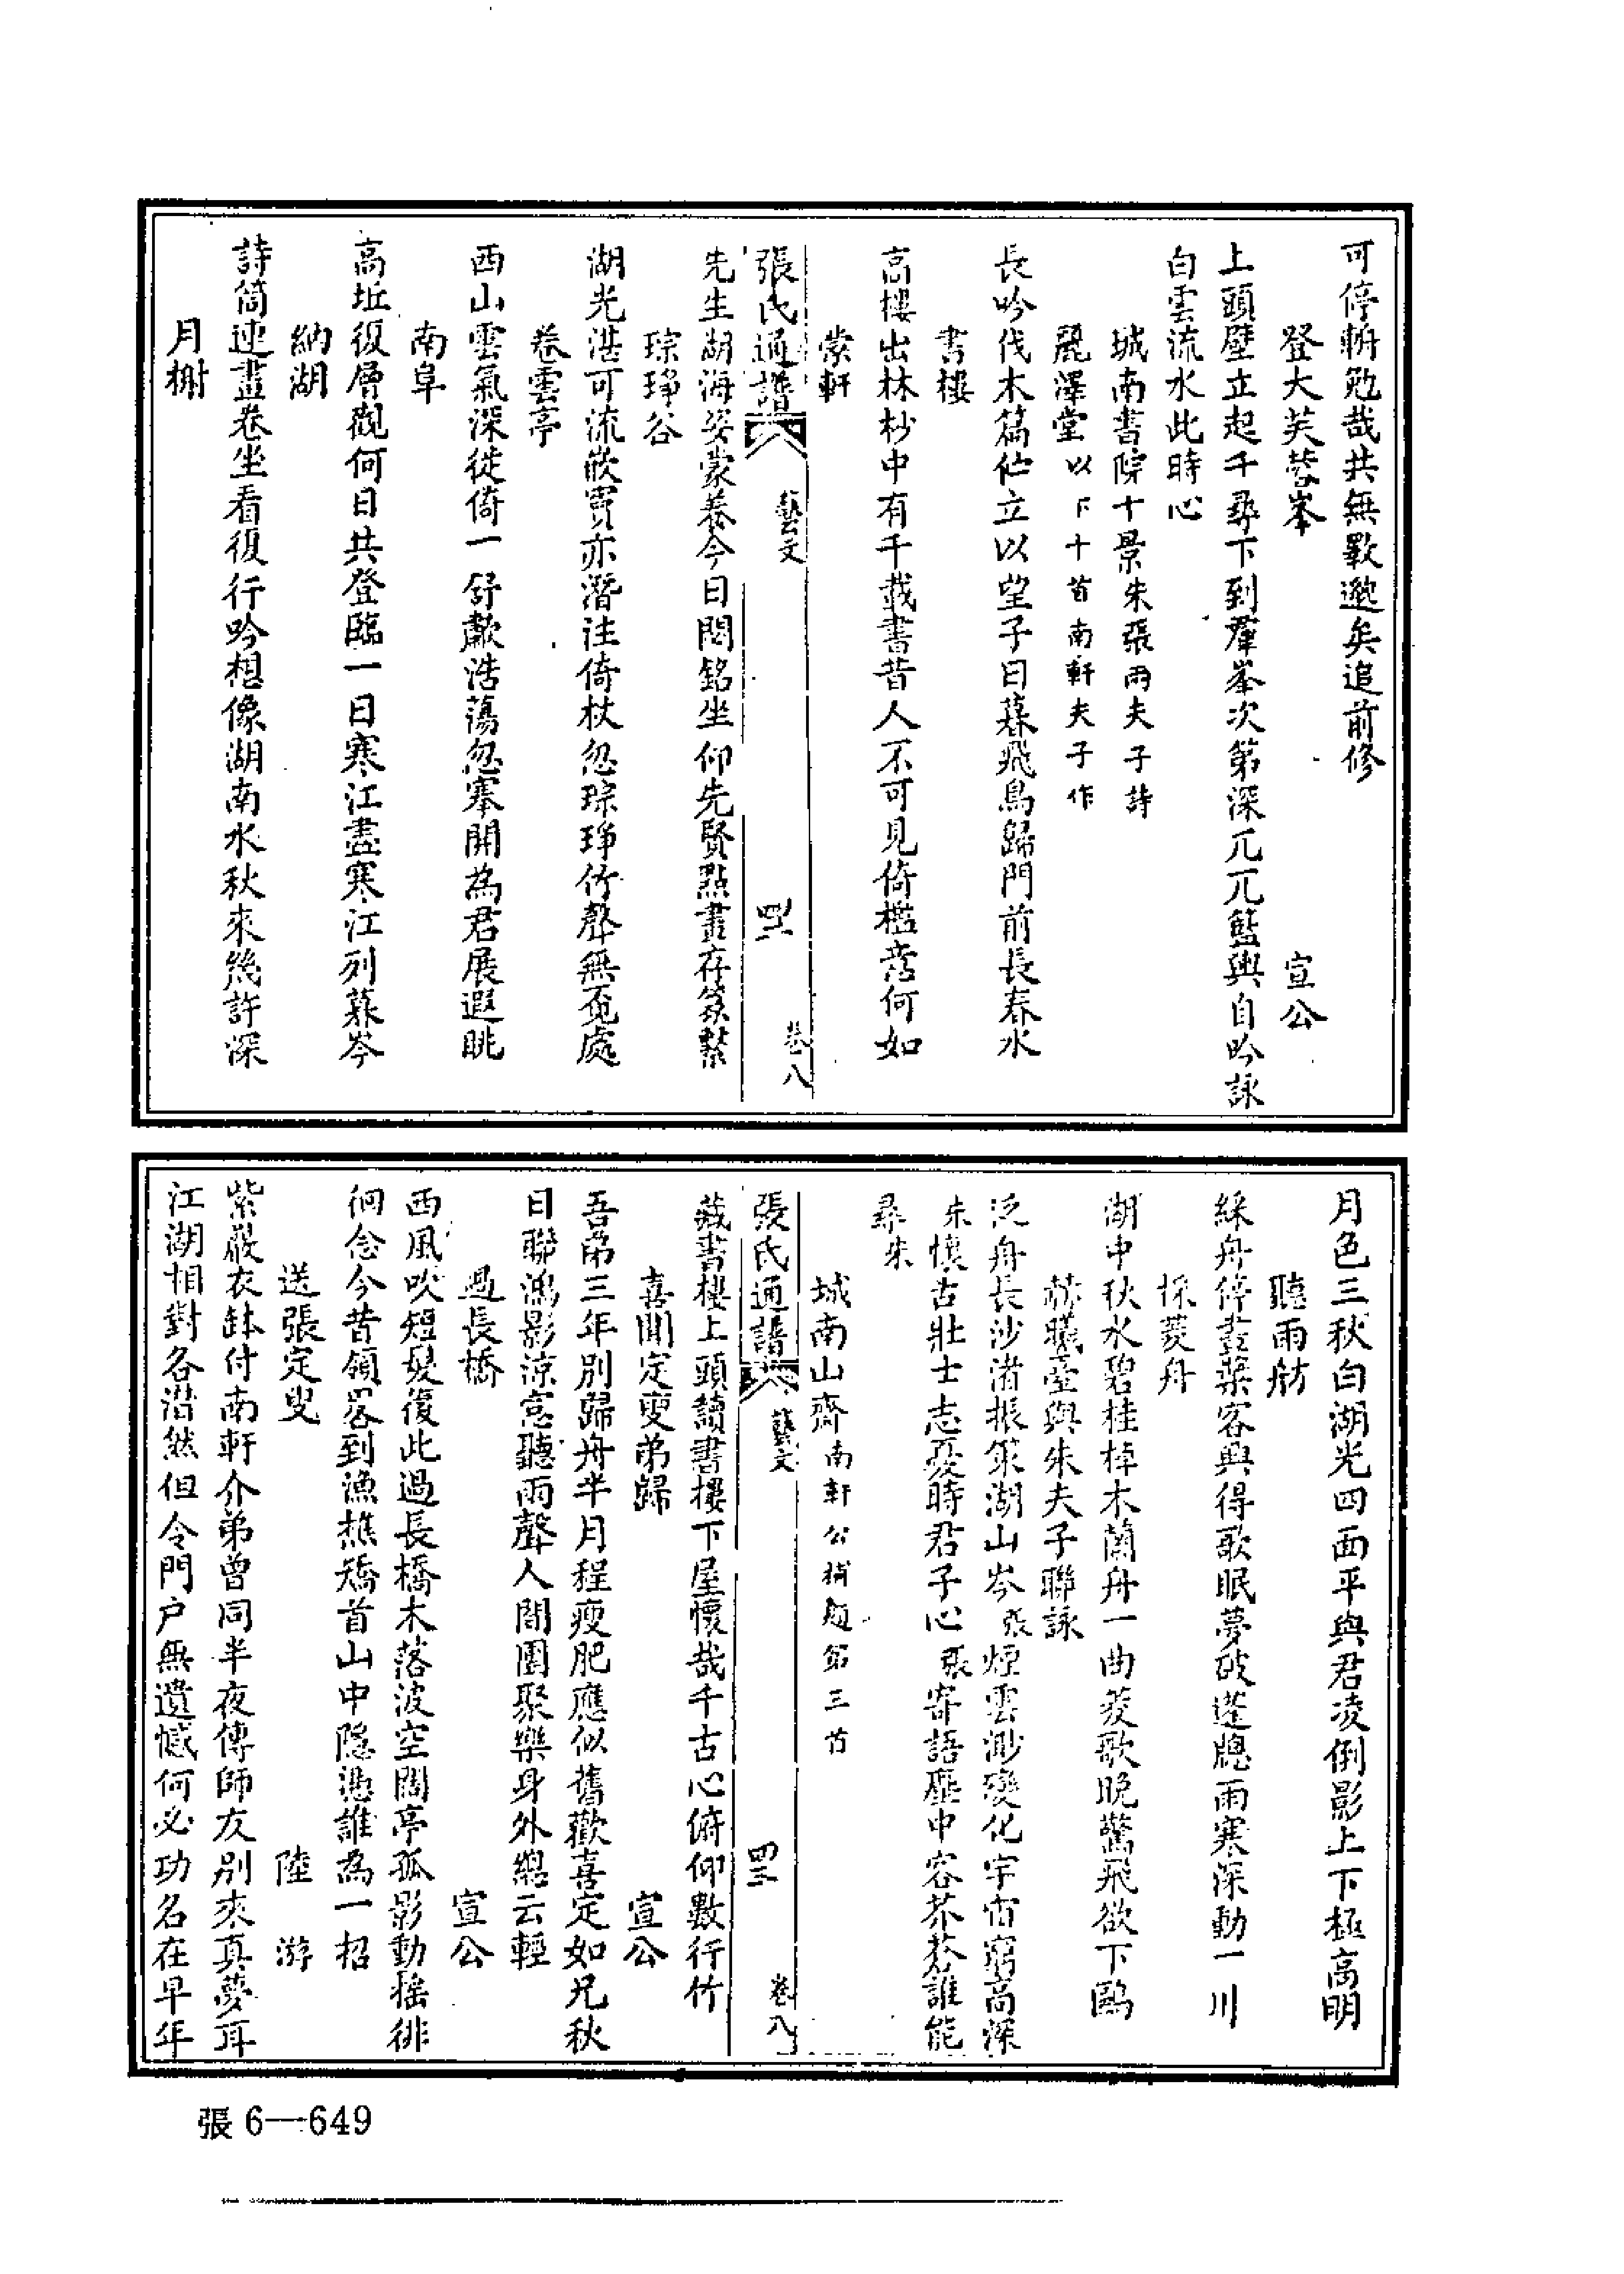 可停輈勉哉共無斁邈矣追前修
登大芙蓉峯 宣公
上頭壁立起千尋下到羣峯次第深兀兀籃輿自吟詠
白雲流水此時心
城南書院十景朱張兩夫子詩
麗澤堂以下十首南軒夫子作
長吟伐木篇佇立以望子日暮飛鳥歸門前長春水
書樓
高樓出林杪中有千載書昔人不可見倚檻意何如
蒙軒
張氏通譜 藝文 四二 卷八
先生湖海姿蒙養今日閟銘坐仰先賢點畫存彖繫
琮琤谷
湖光湛可流嵌竇亦潛注倚杖忽琮琤竹聲無覓處
卷雲亭
西山雲氣深徙倚一舒歗浩蕩忽搴開為君展遐眺
南阜
高坵復層觀何日共登臨一日寒江盡寒江列暮岑
納湖
詩筒連畫卷坐看復行吟想像湖南水秋來幾許深
月榭
月色三秋白湖光四面平與君凌倒影上下極高明
聽雨舫
綵舟停畫槳客興得歌眠夢破蓬牕雨寒深動一川
採菱舟
湖中秋水碧桂棹木蘭舟一曲菱歌晚驚飛欲下鷗
赫曦臺與朱夫子聯詠
泛舟長沙渚振策湖山岑張煙雲渺變化宇宙窮高深
朱懷古壯士志憂時君子心張寄語塵中客莽莽誰能
尋朱
城南山齋南軒公補題第三首
張氏通譜 藝文 四三 卷八
藏書樓上頭讀書樓下屋懷哉千古心俯仰數行竹
喜聞定叟弟歸 宣公
吾弟三年別歸舟半月程瘦肥應似舊歡喜定如兄秋
日聯鴻影涼窓聽雨聲人間團聚樂身外總云輕
過長橋 宣公
西風吹短髮復此過長橋木落波空闊亭孤影動搖徘
徊念今昔領畧到漁樵矯首山中隱憑誰為一招
送張定叟 陸游
紫巖衣缽付南軒介弟曾同半夜傳師友別來真夢耳
江湖相對各潸然但令門户無遺憾何必功名在早年
張6—649